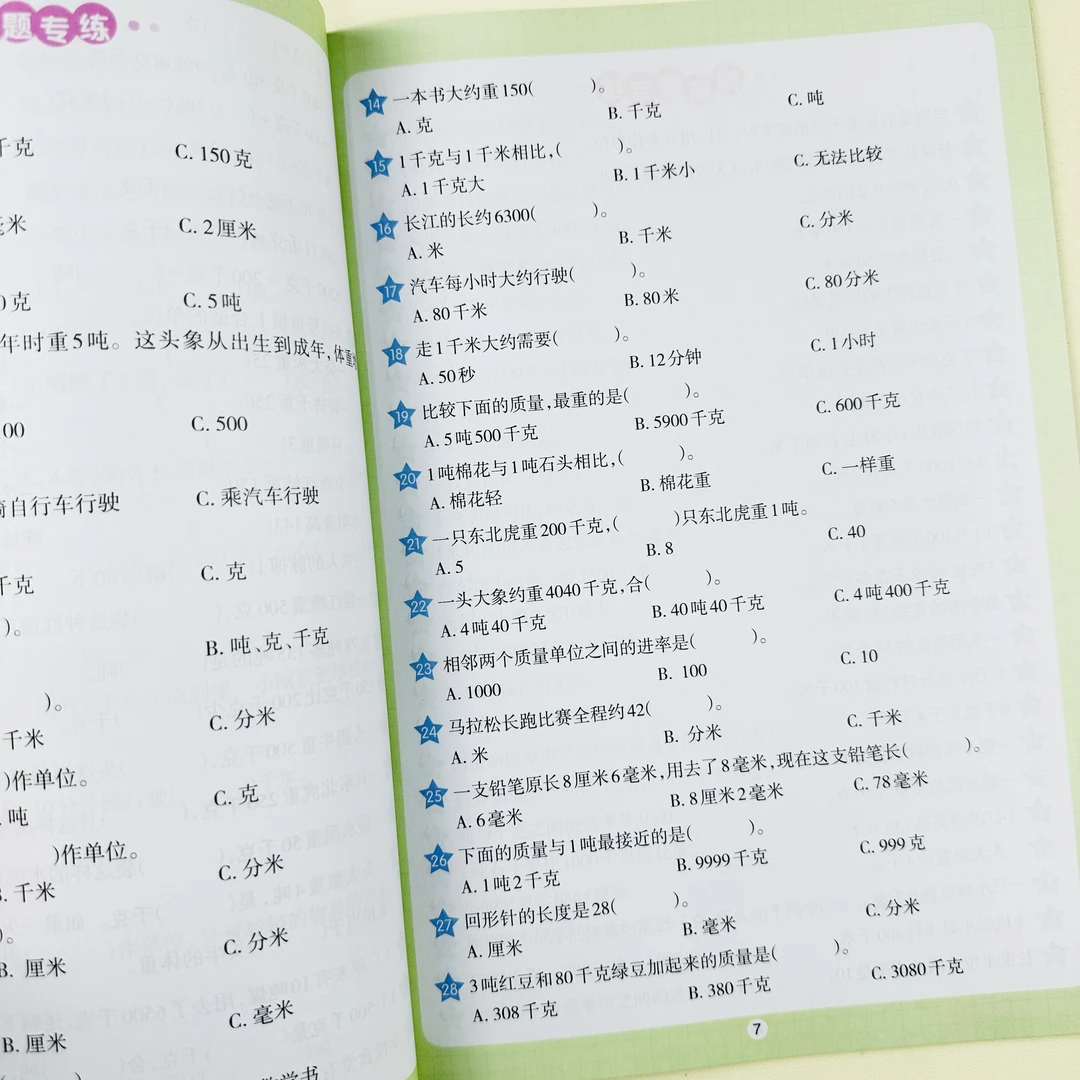 题专练
千克
C. 150克
毫米
C. 2厘米
0克
C. 5吨
年时重5吨。这头象从出生到成年,体重
00
C. 500
骑自行车行驶
C. 乘汽车行驶
千克
C. 克
)。
B. 吨、克、千克
)。
千米
C. 分米
)作单位。
吨
C. 克
)作单位。
B. 千米
C. 分米
)。
B. 厘米
C. 分米
B. 厘米
C. 毫米
14 一本书大约重150( )。
A. 克 B. 千克 C. 吨
15 1千克与1千米相比,( )。
A. 1千克大 B. 1千米小 C. 无法比较
16 长江的长约6300( )。
A. 米 B. 千米 C. 分米
17 汽车每小时大约行驶( )。
A. 80千米 B. 80米 C. 80分米
18 走1千米大约需要( )。
A. 50秒 B. 12分钟 C. 1小时
19 比较下面的质量,最重的是( )。
A. 5吨500千克 B. 5900千克 C. 600千克
20 1吨棉花与1吨石头相比,( )。
A. 棉花轻 B. 棉花重 C. 一样重
21 一只东北虎重200千克,( )只东北虎重1吨。
A. 5 B. 8 C. 40
22 一头大象约重4040千克,合( )。
A. 4吨40千克 B. 40吨40千克 C. 4吨400千克
23 相邻两个质量单位之间的进率是( )。
A. 1000 B. 100 C. 10
24 马拉松长跑比赛全程约42( )。
A. 米 B. 分米 C. 千米
25 一支铅笔原长8厘米6毫米,用去了8毫米,现在这支铅笔长( )。
A. 6毫米 B. 8厘米2毫米 C. 78毫米
26 下面的质量与1吨最接近的是( )。
A. 1吨2千克 B. 9999千克 C. 999克
27 回形针的长度是28( )。
A. 厘米 B. 毫米 C. 分米
28 3吨红豆和80千克绿豆加起来的质量是( )。
A. 308千克 B. 380千克 C. 3080千克
7